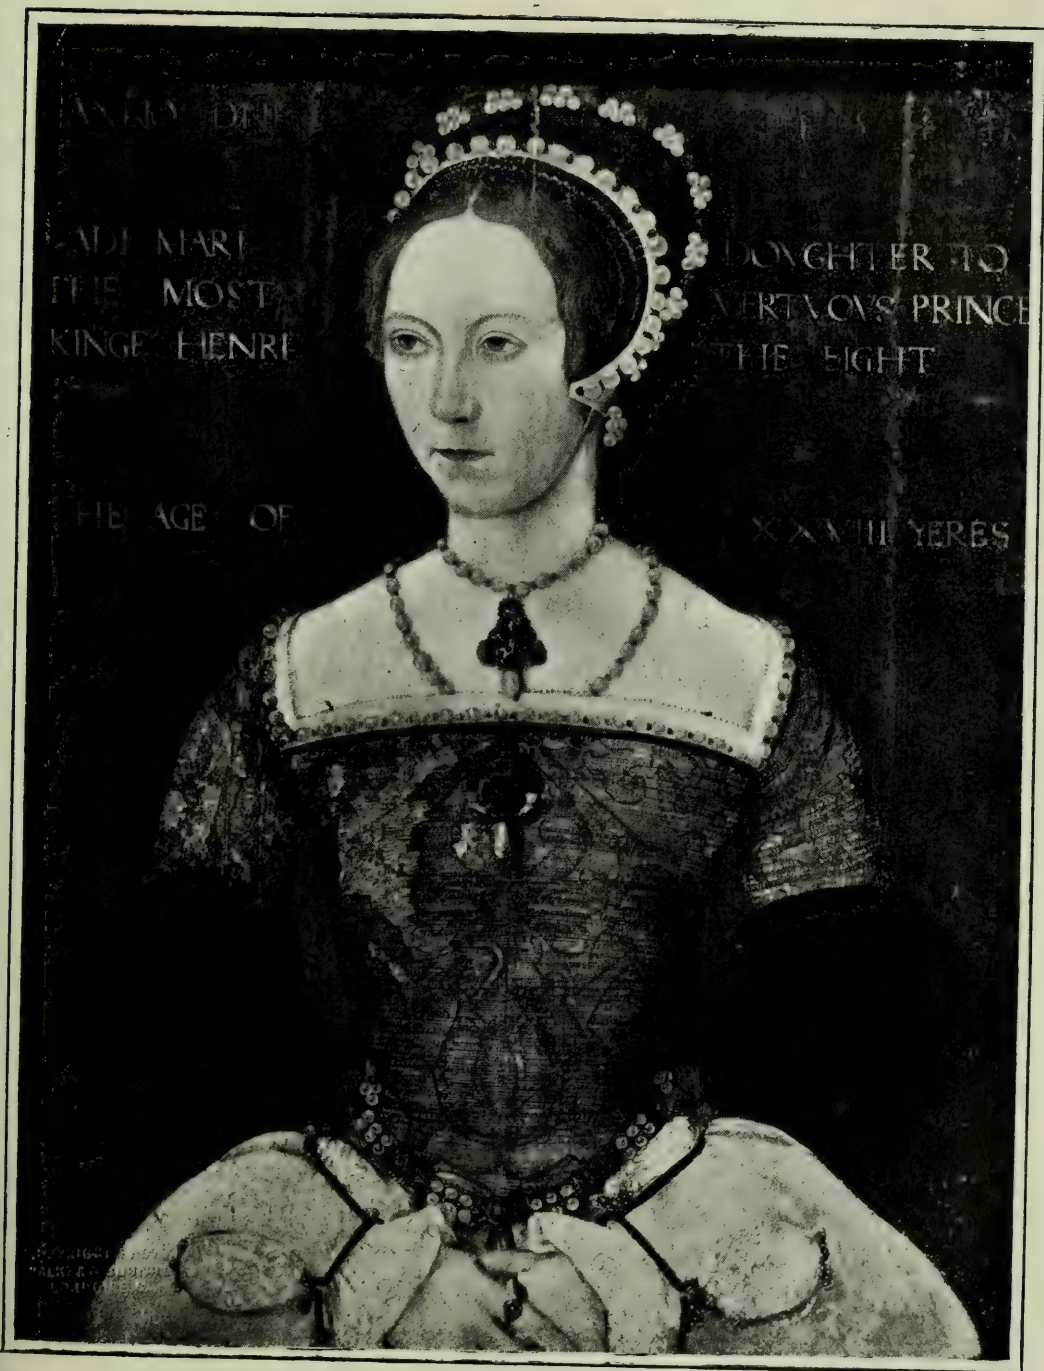 ANNO DNI 1544
LADI MARI DOVGHTER TO
THE MOST VERTVOVS PRINCE
KINGE HENRI THE EIGHT
THE AGE OF XXVIII YERES